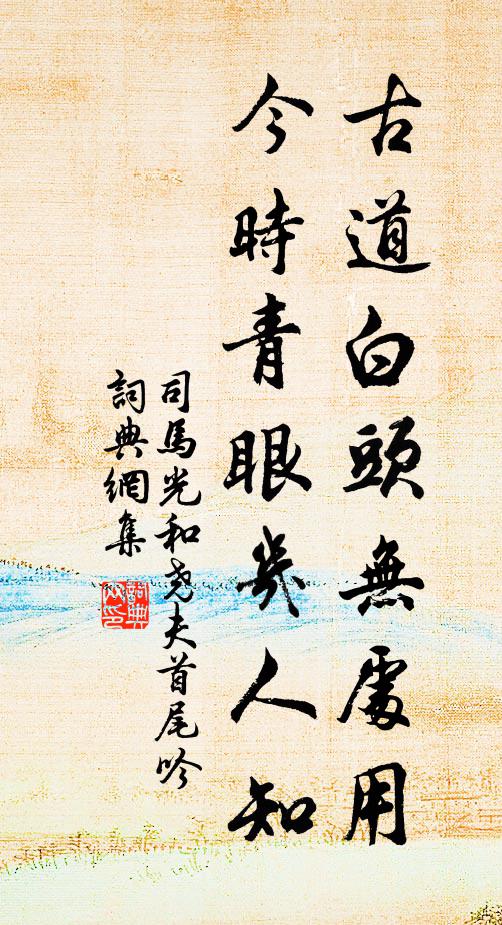 古道白頭無處用
今時青眼幾人知
司馬光和堯夫首尾吟
詞典網集